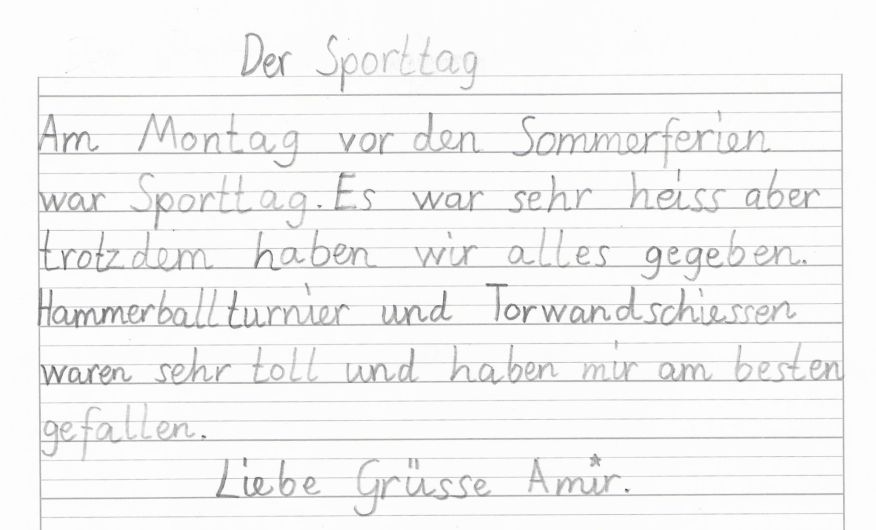 Der Sporttag
Am Montag vor den Sommerferien
war Sporttag. Es war sehr heiss aber
trotzdem haben wir alles gegeben.
Hammerballturnier und Torwandschiessen
waren sehr toll und haben mir am besten
gefallen.
Liebe Grüsse Amir.